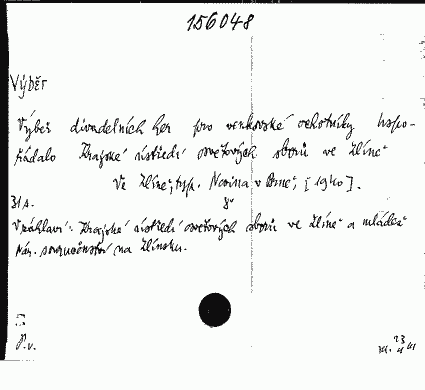 156048
Výběr
Výběr divadelních her pro venkovské ochotníky uspo-
řádalo Krajské ústředí osvětových sborů ve Zlíně
Ve Zlíně, typ. Novina v Brně, [1940].
31 s. 8°
V záhlaví: Krajské ústředí osvětových sborů ve Zlíně a mládež
Nár. souručenství na Zlínsku.
P.v.
23